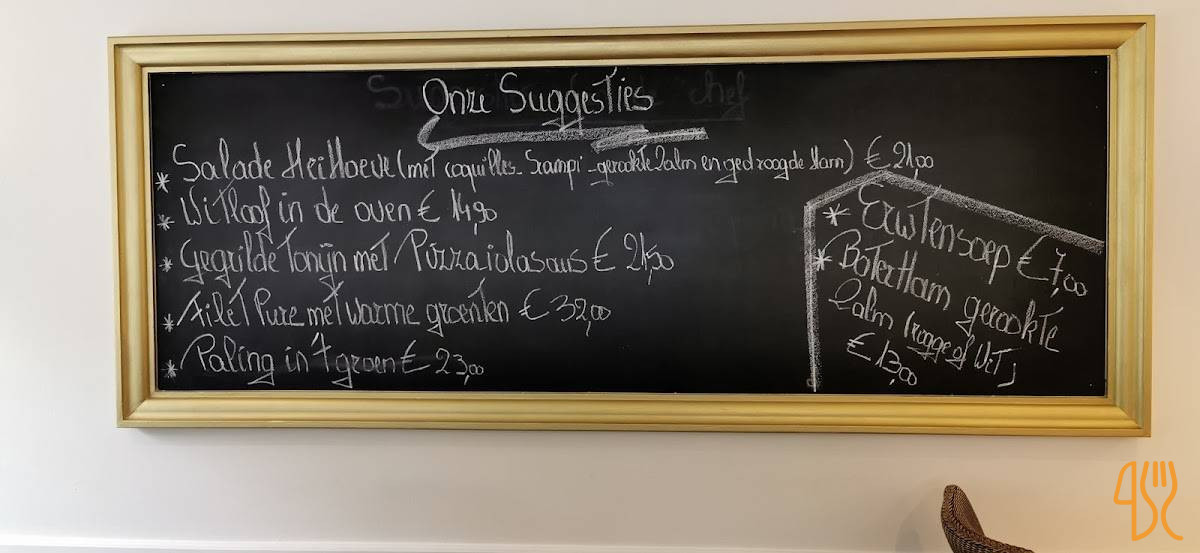 Onze Suggesties
* Salade HeiHoeve (met coquilles - Scampi - gerookte Zalm en gedroogde Ham) € 21,00
* Witloof in de oven € 14,90
* Gegrilde Tonijn met Pizzaiolasaus € 21,50
* Filet Pure met warme groenten € 32,00
* Paling in 't groen € 23,00
* Erwtensoep € 7,00
* BoterHam gerookte
Zalm (rogge of Wit)
€ 13,00